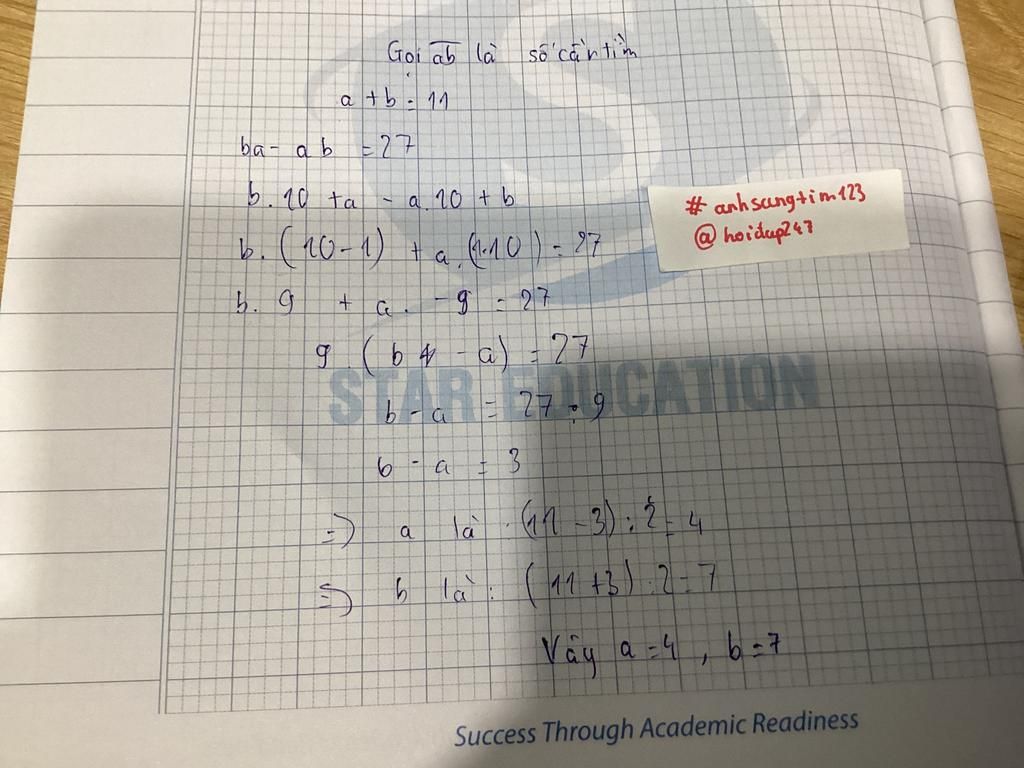 Gọi ab là số cần tìm
a + b = 11
ba - ab = 27
b. 10 + a - a. 10 + b
b. (10 - 1) + a. (1-10) = 27
b. 9 + a. - 9 = 27
9. (b - a) = 27
b - a = 27 : 9
b - a = 3
=) a là : (11 - 3) : 2 = 4
=) b là : (11 + 3) : 2 = 7
Vây a = 4 , b = 7
# anhsangtim123
@hoidap247
STAR EDUCATION
Success Through Academic Readiness